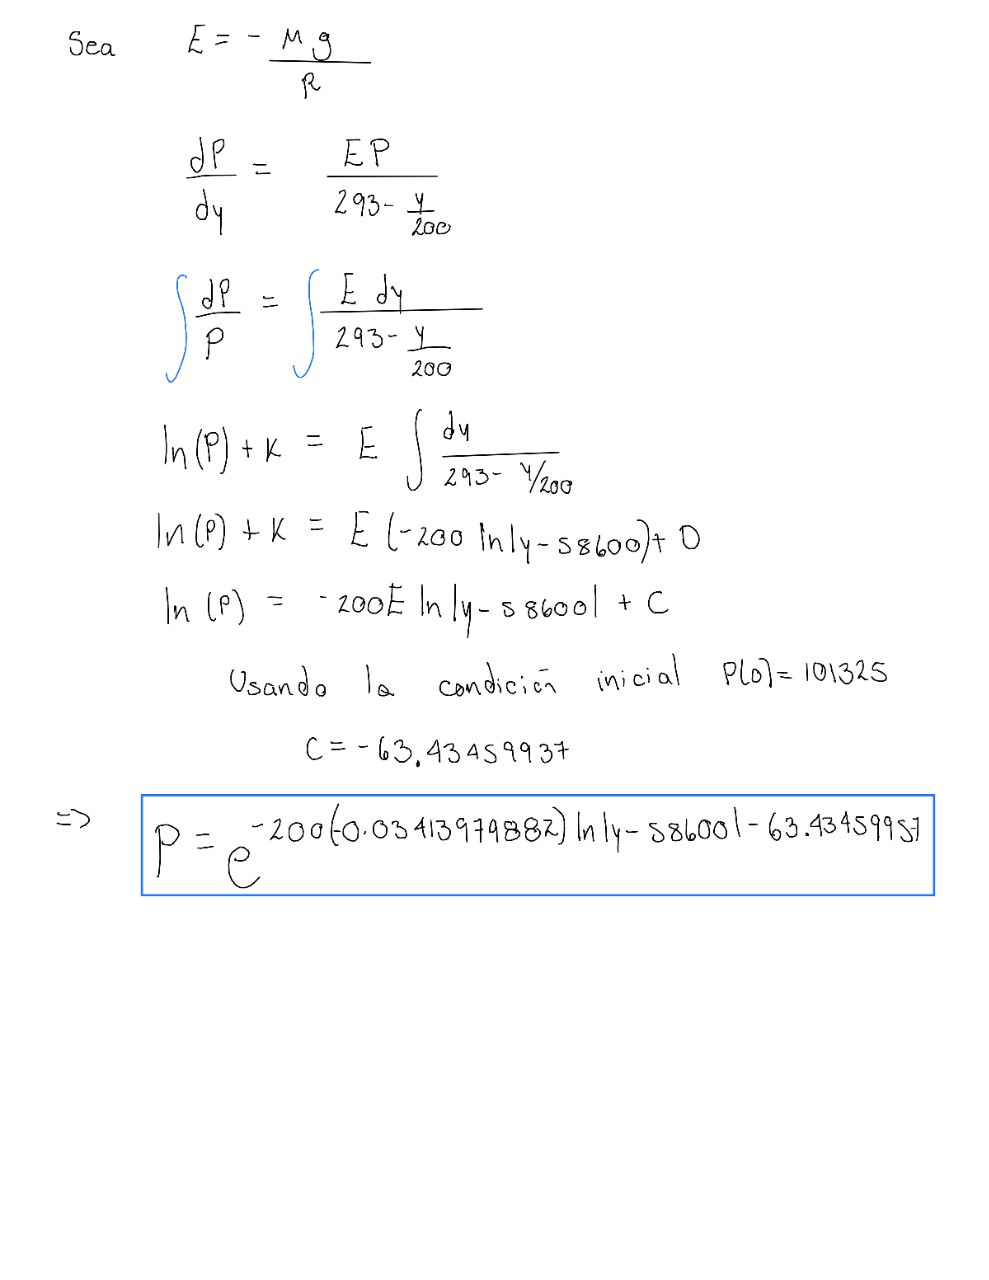 Sea E = - Mg/R
dP/dy = EP/(293 - y/200)
∫ dP/P = ∫ E dy/(293 - y/200)
ln(P) + K = E ∫ dy/(293 - y/200)
ln(P) + K = E (-200 ln|y - 58600) + D
ln(P) = -200E ln|y - 58600| + C
Usando la condición inicial P(0) = 101325
C = -63.43459937
=> P = e^{-200(-0.03413979882) ln|y - 58600| - 63.43459957}